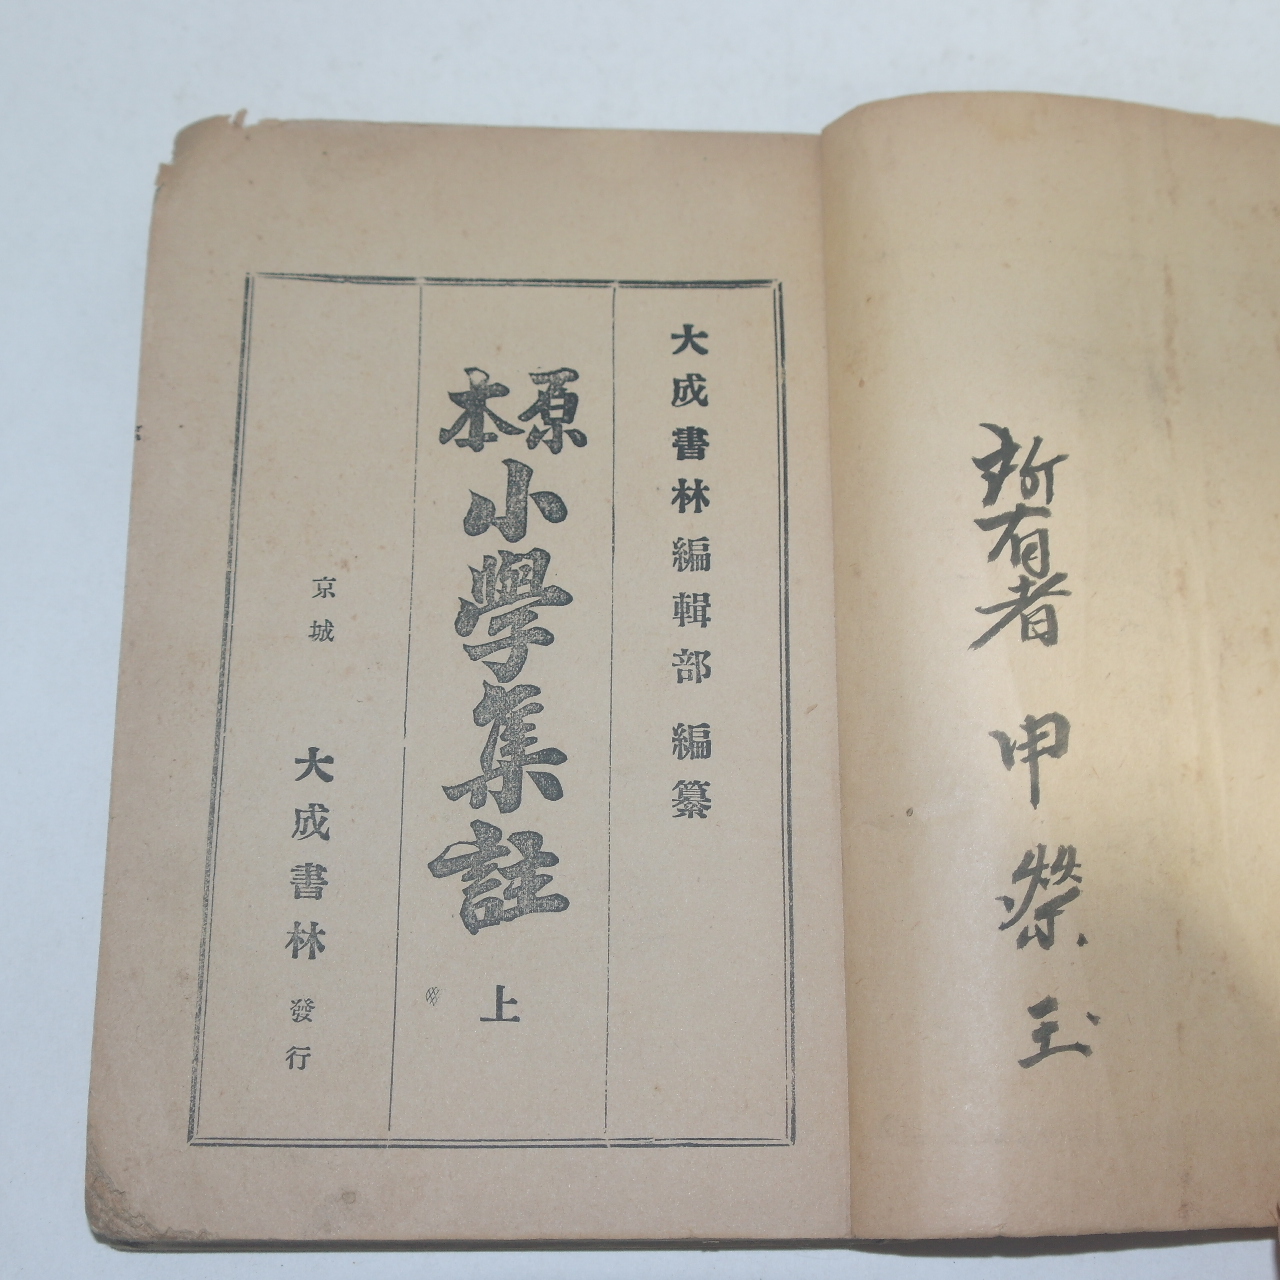 所有者 申榮玉
大成書林編輯部 編纂
原本 小學集註 上
京城 大成書林 發行